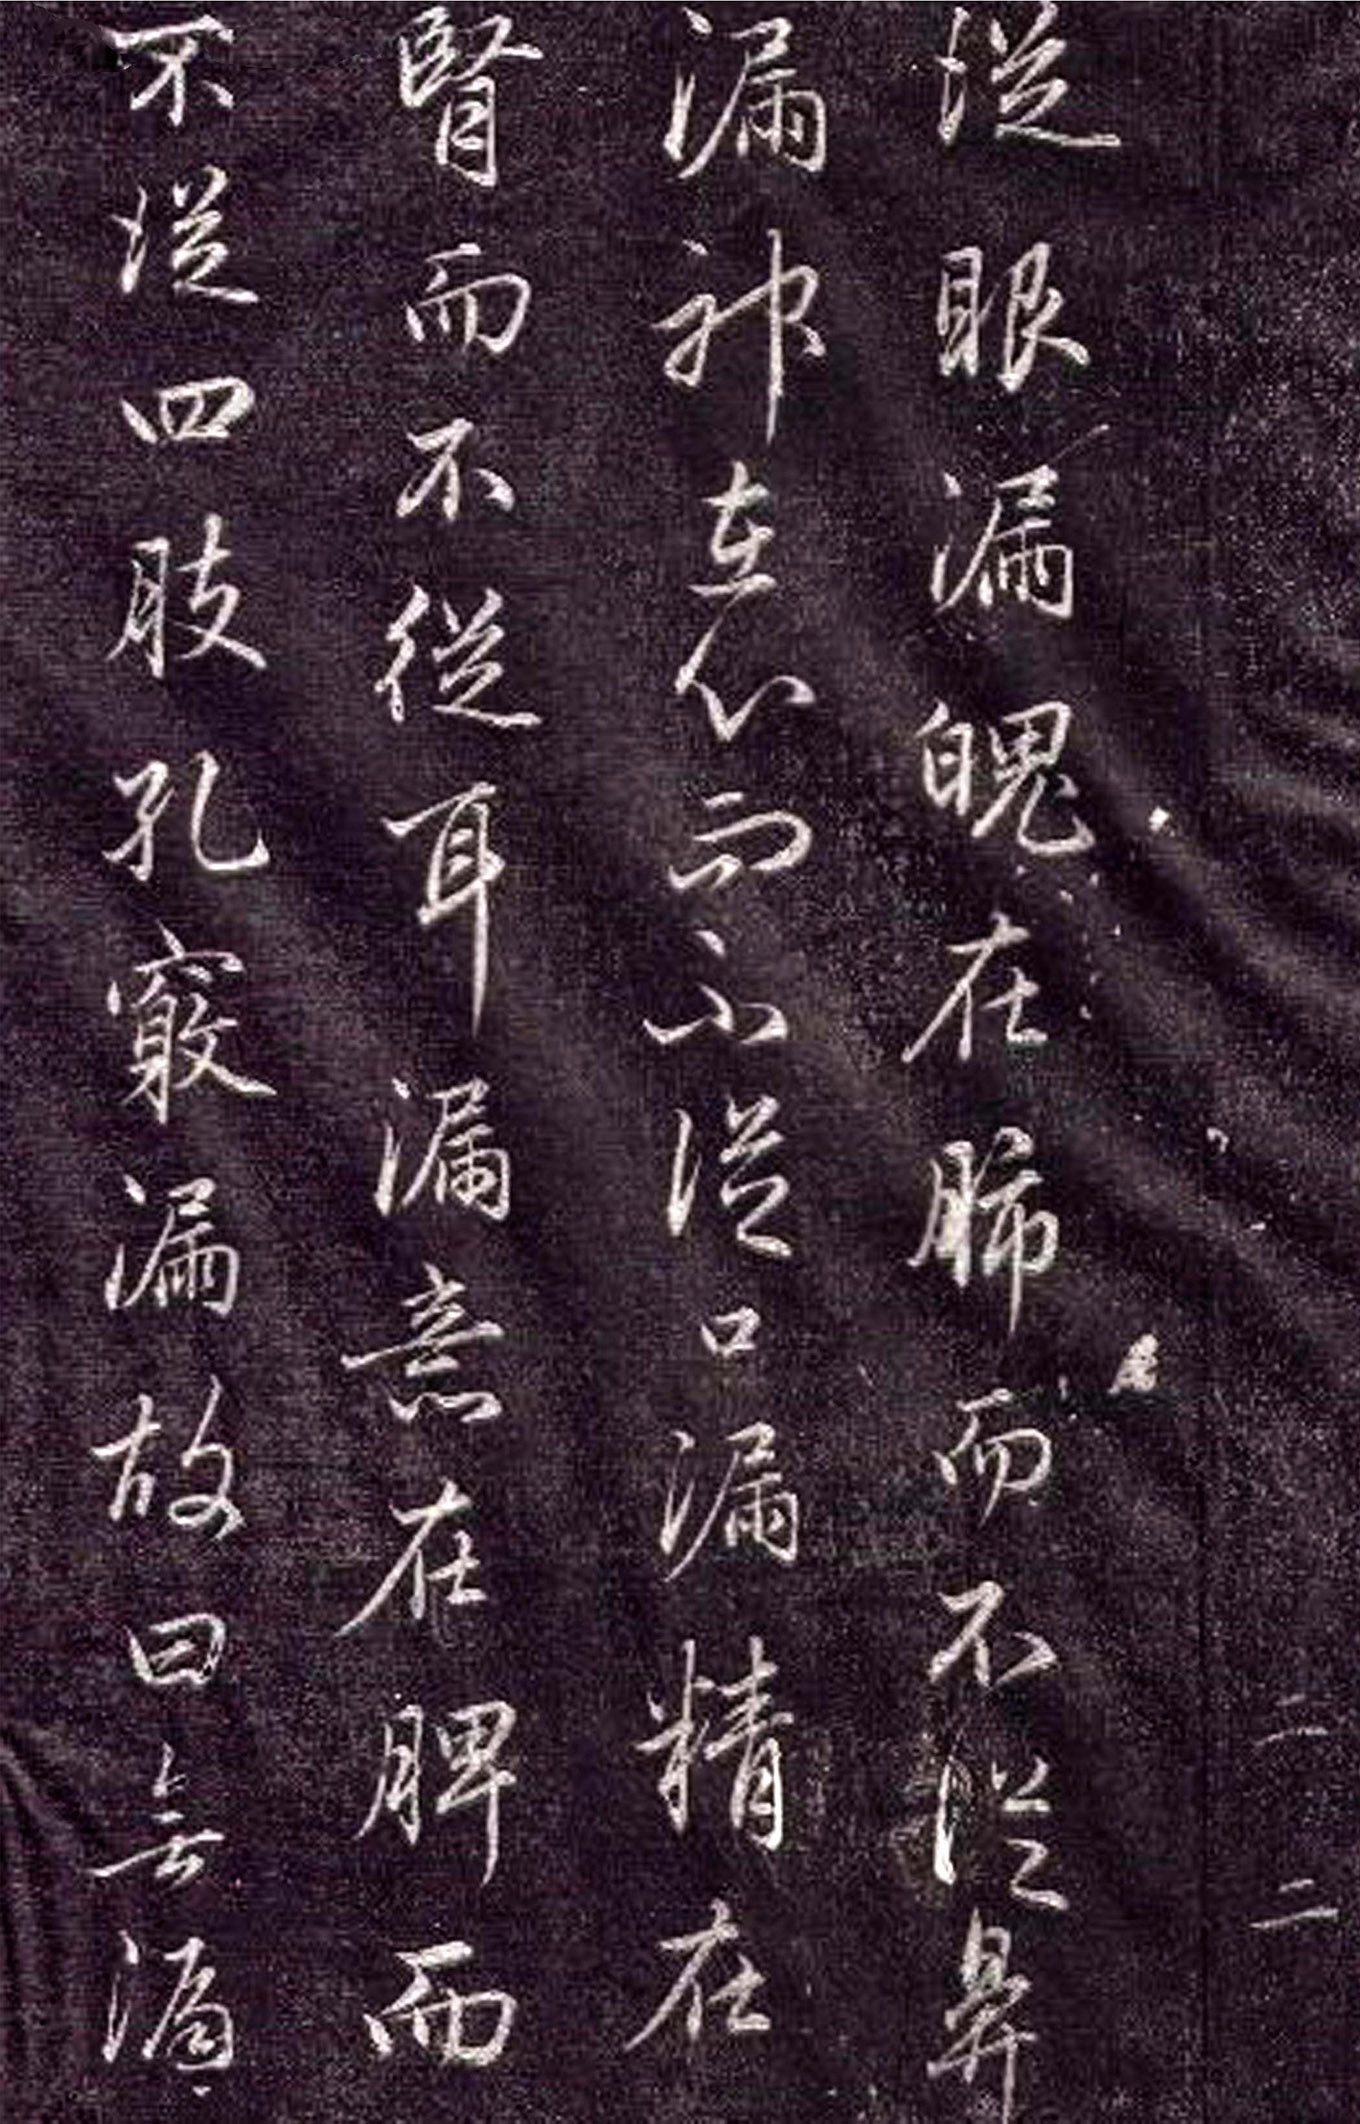 二 二
従眼漏魄在肺而不従鼻
漏神在心而不従口漏精在
腎而不従耳漏意在脾而
不従四肢孔竅漏故曰無漏